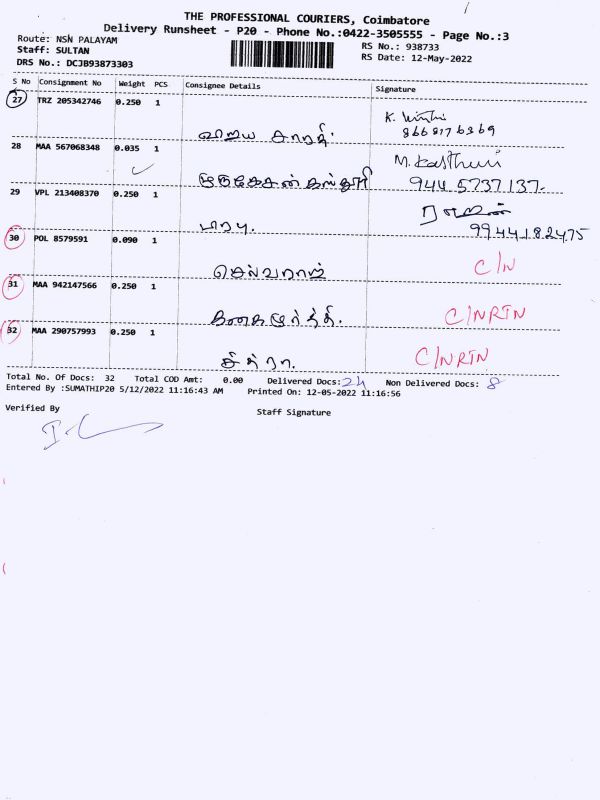 THE PROFESSIONAL COURIERS, Coimbatore
Delivery Runsheet - P20 - Phone No.:0422-3505555 - Page No.:3
Route: NSN PALAYAM
RS No.: 938733
Staff: SULTAN
RS Date: 12-May-2022
DRS No.: DCJB93873303
S No Consignment No Weight PCS Consignee Details Signature
27 TRZ 205342746 0.250 1
8668176369
28 MAA 567068348 0.035 1 M. Kasthuri
முருகேசன் கஸ்தூரி 944 5737 137.
29 VPL 213408370 0.250 1
99441 82475
30 POL 8579591 0.090 1
செல்வராஜ் C/N
31 MAA 942147566 0.250 1
C/NRTN
32 MAA 290757993 0.250 1
சித்ரா. C/NRTN
Total No. Of Docs: 32 Total COD Amt: 0.00 Delivered Docs: 24 Non Delivered Docs: 8
Entered By :SUMATHIP20 5/12/2022 11:16:43 AM Printed On: 12-05-2022 11:16:56
Verified By
Staff Signature